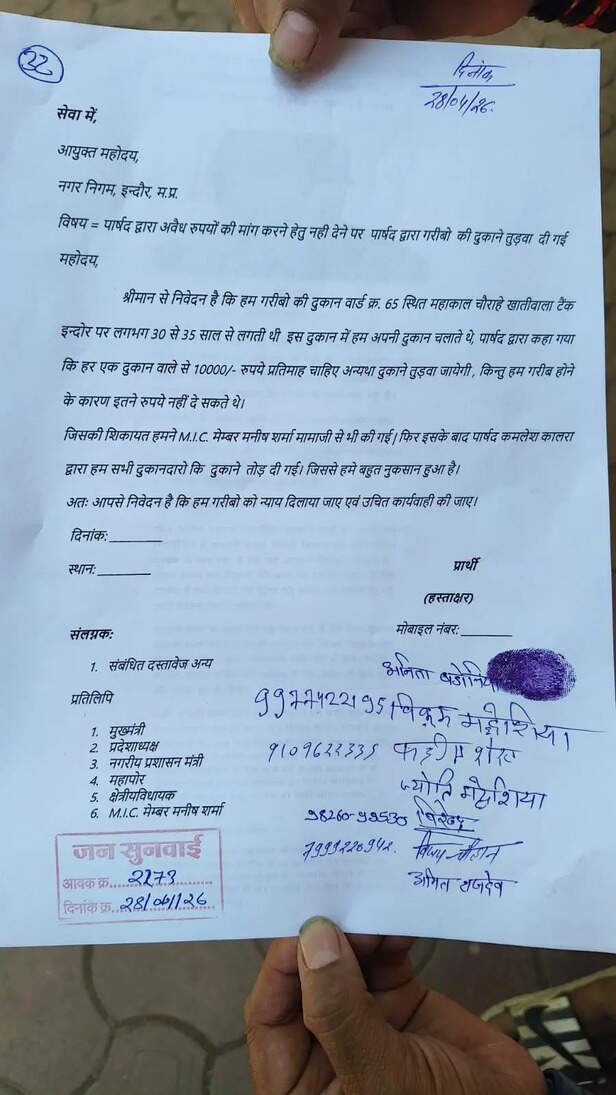 32
दिनांक
28/04/26.
सेवा में,
आयुक्त महोदय,
नगर निगम, इन्दौर, म.प्र.
विषय = पार्षद द्वारा अवैध रुपयों की मांग करने हेतु नही देने पर पार्षद द्वारा गरीबो की दुकाने तुड़वा दी गई
महोदय,
श्रीमान से निवेदन है कि हम गरीबो की दुकान वार्ड क्र. 65 स्थित महाकाल चौराहे खातीवाला टैंक
इन्दौर पर लगभग 30 से 35 साल से लगती थी इस दुकान में हम अपनी दुकान चलाते थे, पार्षद द्वारा कहा गया
कि हर एक दुकान वाले से 10000/- रुपये प्रतिमाह चाहिए अन्यथा दुकाने तुड़वा जायेगी , किन्तु हम गरीब होने
के कारण इतने रुपये नहीं दे सकते थे।
जिसकी शिकायत हमने M.I.C. मेम्बर मनीष शर्मा मामाजी से भी की गई| फिर इसके बाद पार्षद कमलेश कालरा
द्वारा हम सभी दुकानदारो कि दुकाने तोड़ दी गई। जिससे हमे बहुत नुकसान हुआ है।
अतः आपसे निवेदन है कि हम गरीबो को न्याय दिलाया जाए एवं उचित कार्यवाही की जाए।
दिनांक: ________
स्थान: ________
प्रार्थी
(हस्ताक्षर)
मोबाइल नंबर: ________
संलग्रक:
1. संबंधित दस्तावेज अन्य
प्रतिलिपि
1. मुख्यमंत्री
2. प्रदेशाध्यक्ष
3. नगरीय प्रशासन मंत्री
4. महापोर
5. क्षेत्रीयविधायक
6. M.I.C. मेम्बर मनीष शर्मा
अनिता
9977422195 विक्रम
9109622335
ज्योति
98260-99530
7999220942. विजय चौहान
अमित
जन सुनवाई
आवक क्र. 2273
दिनांक क्र. 28/04/26